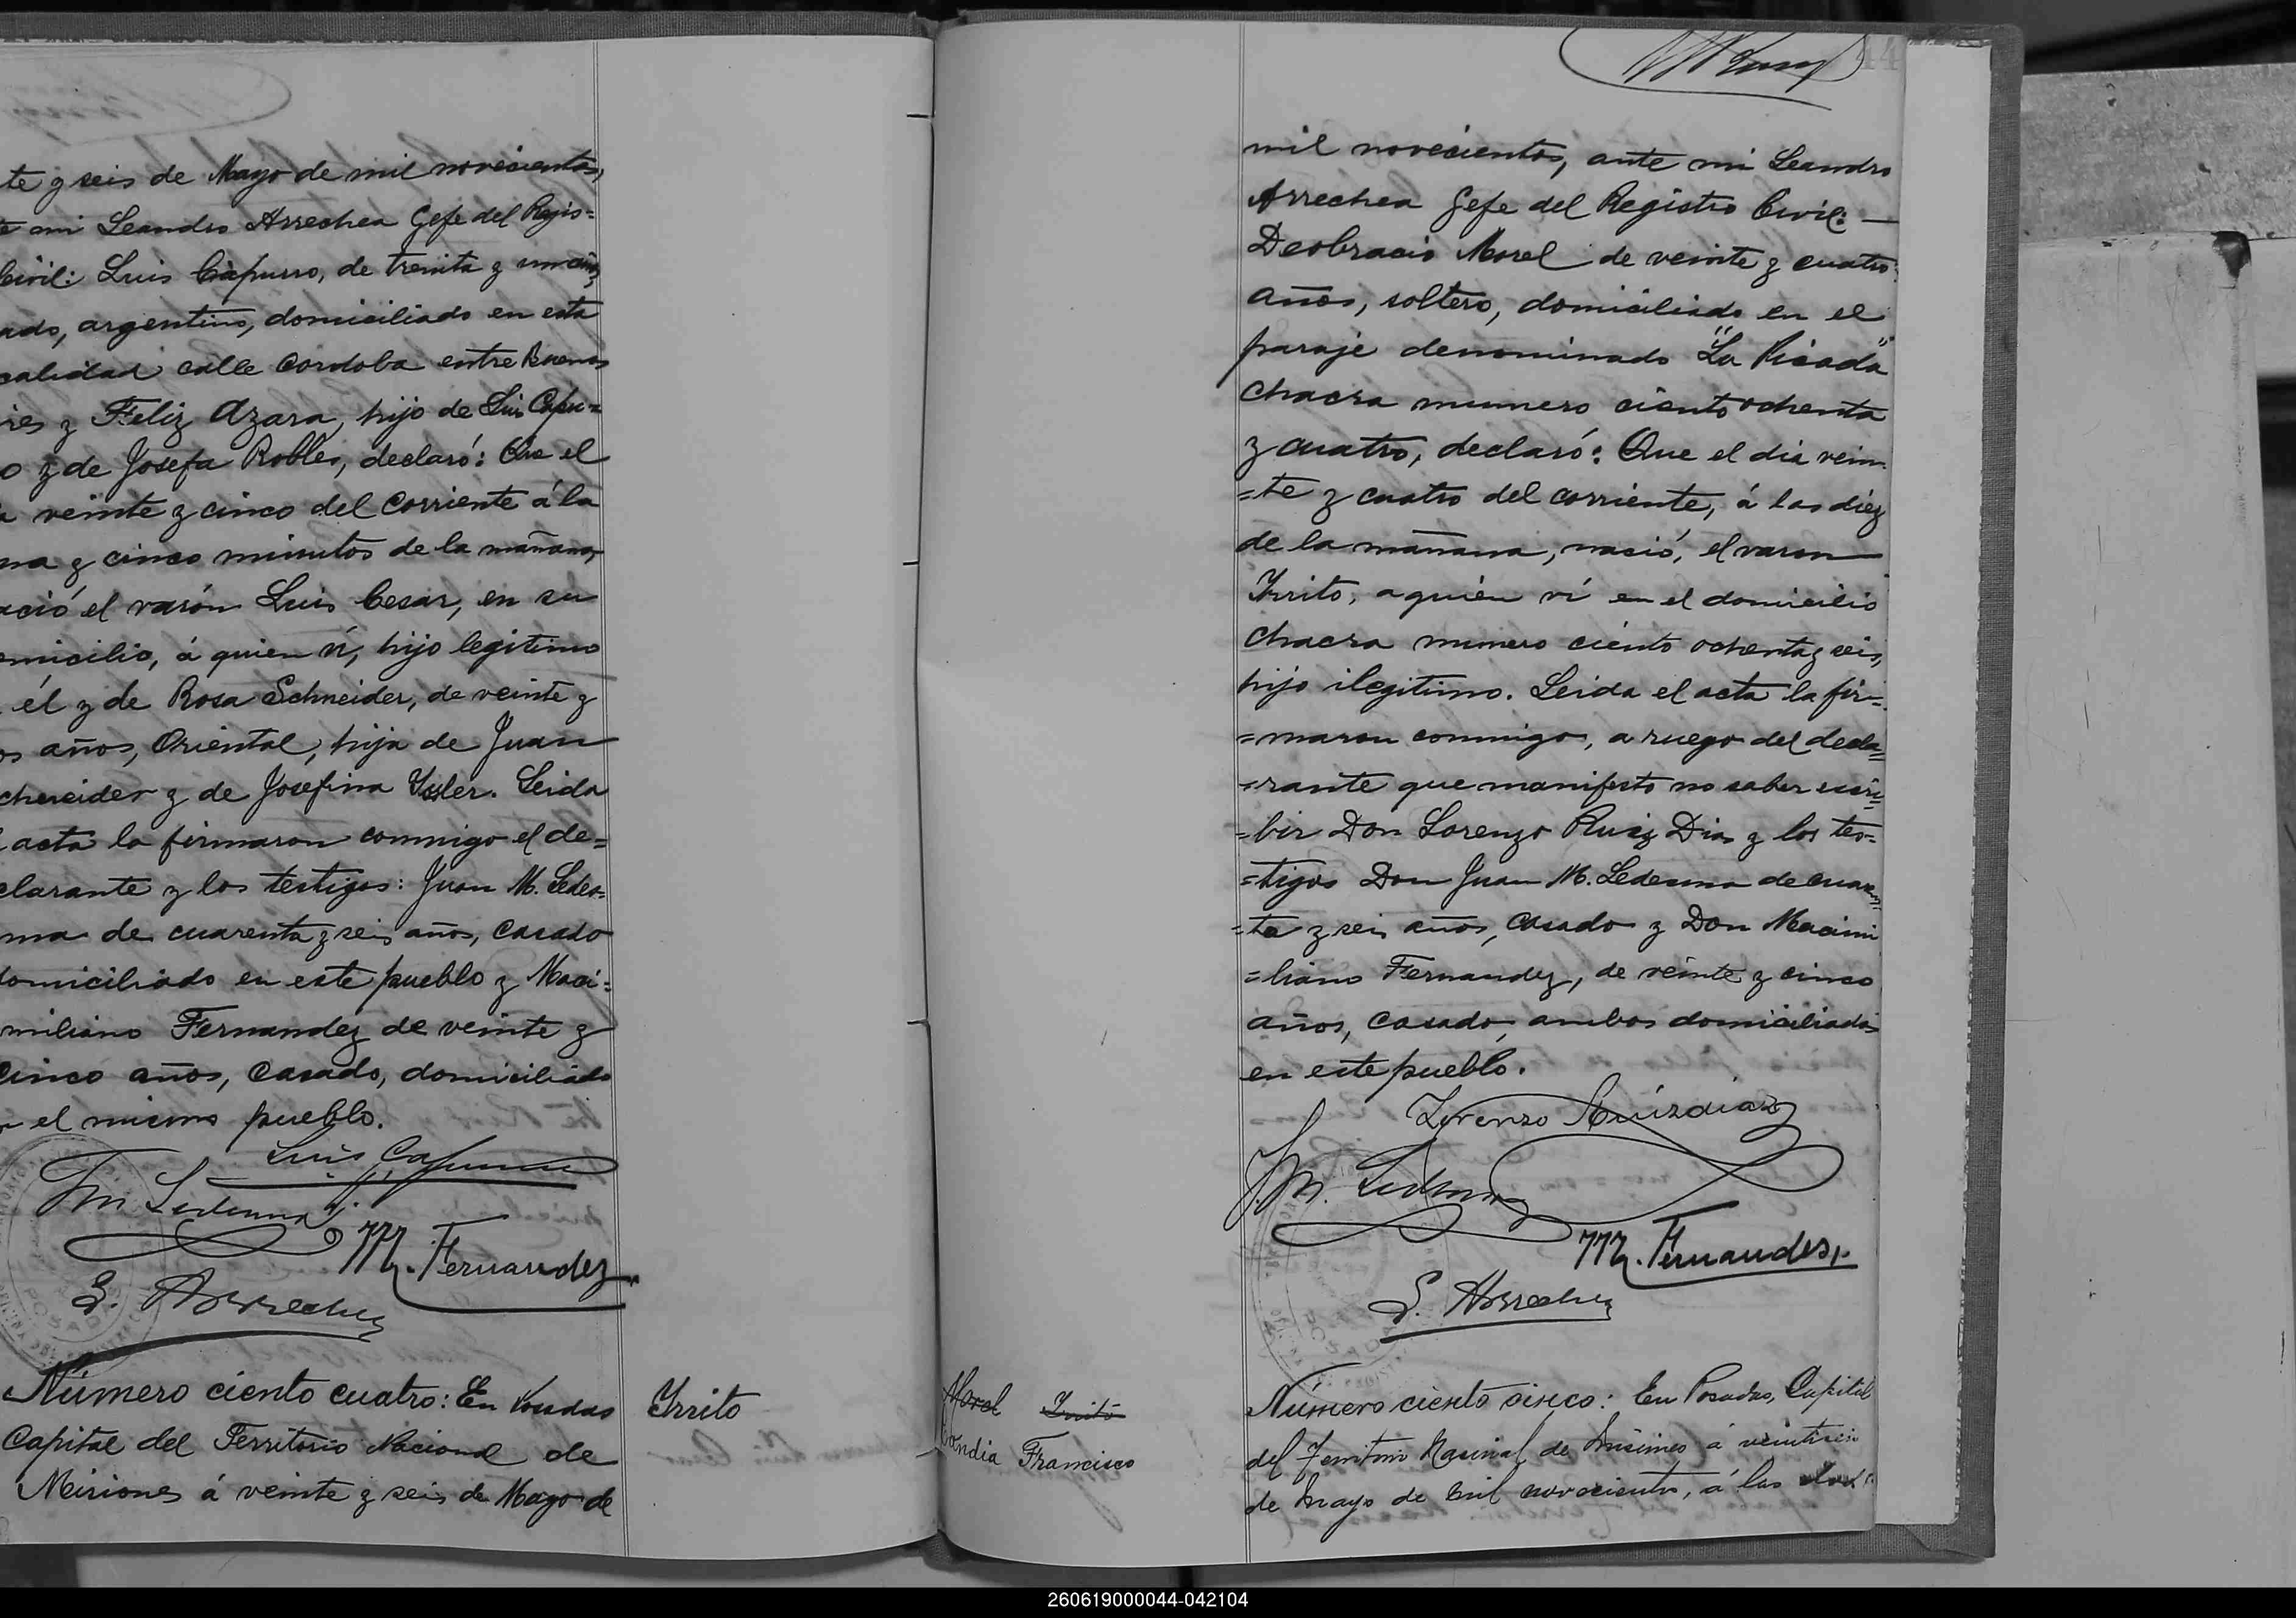 te y seis de Mayo de mil novecientos,
mi Leandro Arrechea Gefe del Regis=
Civil: Luis Capurro, de treinta y un años,
ado, argentino, domiciliado en esta
calidad calle Cordoba entre Buenos
res y Feliz Azara, hijo de Luis Capu=
o y de Josefa Robles, declaró: Que el
a veinte y cinco del corriente á la
na y cinco minutos de la mañana,
ació el varón Luis Cesar, en su
omicilio, á quien ví, hijo legitimo
él y de Rosa Schneider, de veinte y
os años, Oriental, hija de Juan
chneider y de Josefina Yssler. Leida
acta la firmaron conmigo el de=
clarante y los testigos: Juan M. Ledes=
ma de cuarenta y seis años, casado
domiciliado en este pueblo y Maci=
miliano Fernandez de veinte y
cinco años, casado, domiciliado
el mismo pueblo.
Luis Capurro
Jm Ledesma
M. Fernandez
L. Arrechea
Número ciento cuatro: En Posadas
Capital del Territorio Nacional de
Misiones á veinte y seis de Mayo de
Yrrito
mil novecientos, ante mi Leandro
Arrechea Gefe del Registro Civil:
Deobracio Morel de veinte y cuatro
años, soltero, domiciliado en el
paraje denominado "La Picada"
chacra numero ciento ochenta
y cuatro, declaró: Que el dia vein
=te y cuatro del corriente, á las diez
de la mañana, nació, el varon
Yrrito, a quien ví en el domicilio
chacra numero ciento ochenta y seis,
hijo ilegitimo. Leida el acta la fir=
=maron conmigo, a ruego del decla=
=rante que manifesto no saber escri=
=bir Don Lorenzo Ruiz Dias y los tes=
=tigos Don Juan M. Ledesma de cuaren=
=ta y seis años, casado y Don Macimi
=liano Fernandez, de veinte y cinco
años, casado, ambos domiciliados
en este pueblo.
Lorenzo Ruizdiaz
Jm. Ledesma
M. Fernandez
L. Arrechea
Morel Yrrito
Candia Francisco
Número ciento cinco: En Posadas, Capital
del Territorio Nacional de Misiones á veintiseis
de Mayo de mil novecientos, á las
260619000044-042104